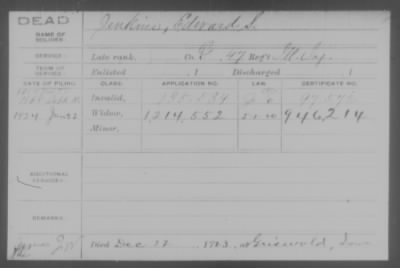 DEAD
NAME OF SOLDIER:
Jenkins, Edward S.
SERVICE:
Late rank, Co. 47 Reg't Ill. Inf.
TERM OF SERVICE:
Enlisted , 1 Discharged , 1
DATE OF FILING. CLASS. APPLICATION NO. LAW. CERTIFICATE NO.
Invalid,
1924 Jan 2 Widow, 1,214,552 946,214
Minor,
ADDITIONAL SERVICES:
REMARKS:
Died Dec 22, 1923, at Griswold, Iowa